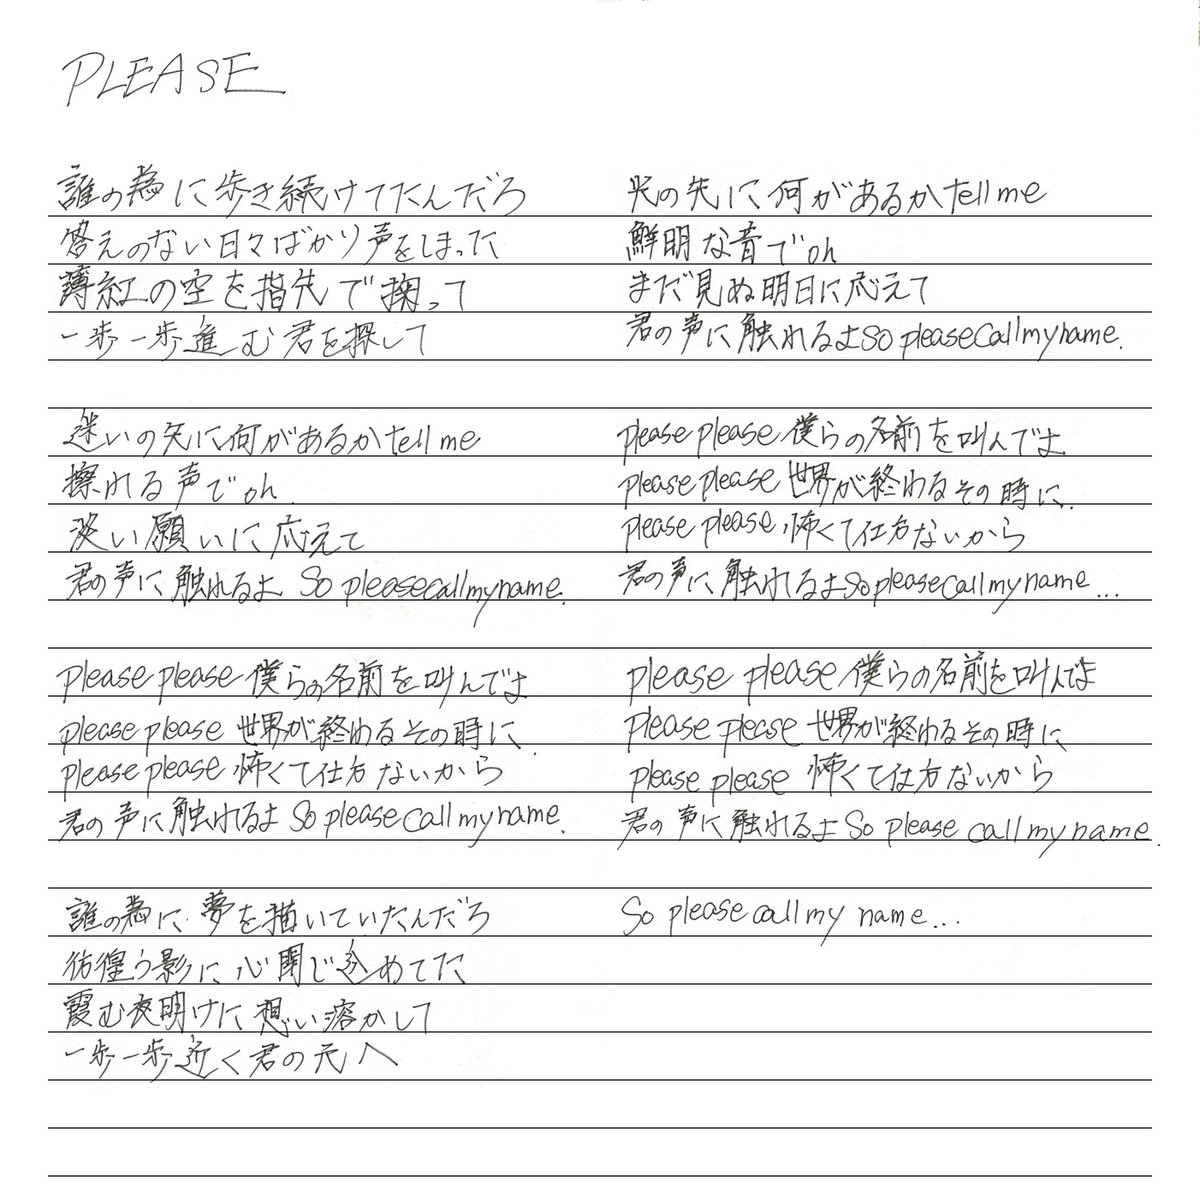 PLEASE
誰の為に歩き続けてたんだろ
答えのない日々ばかり声をしまった
薄紅の空を指先で掬って
一歩一歩進む君を探して
迷いの先に何があるか tell me
擦れる声で oh
淡い願いに応えて
君の声に触れるよ So please call my name.
please please 僕らの名前を叫んでよ
please please 世界が終わるその時に
please please 怖くて仕方ないから
君の声に触れるよ So please call my name.
誰の為に夢を描いていたんだろ
彷徨う影に心閉じ込めてた
霞む夜明けに想い溶かして
一歩一歩近く君の元へ
光の先に何があるか tell me
鮮明な音で oh
まだ見ぬ明日に応えて
君の声に触れるよ So please call my name.
please please 僕らの名前を叫んでよ
please please 世界が終わるその時に
please please 怖くて仕方ないから
君の声に触れるよ So please call my name...
please please 僕らの名前を叫んでよ
please please 世界が終わるその時に
please please 怖くて仕方ないから
君の声に触れるよ So please call my name.
So please call my name...